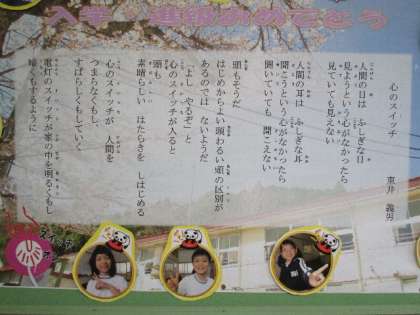 入学・進級おめでとう
心のスイッチ
東井 義男
人間の目は ふしぎな目
見ようという心がなかったら
見ていても見えない
人間の耳は ふしぎな耳
聞こうという心がなかったら
聞いていても 聞こえない
頭もそうだ
はじめからよい頭わるい頭の区別が
あるのでは ないようだ
「よし やるぞ」と
心のスイッチが入ると
頭も
素晴らしい はたらきを しはじめる
心のスイッチが 人間を
つまらなくもし、
すばらしくもしていく
電灯のスイッチが家の中を明るくもし
暗くもするように